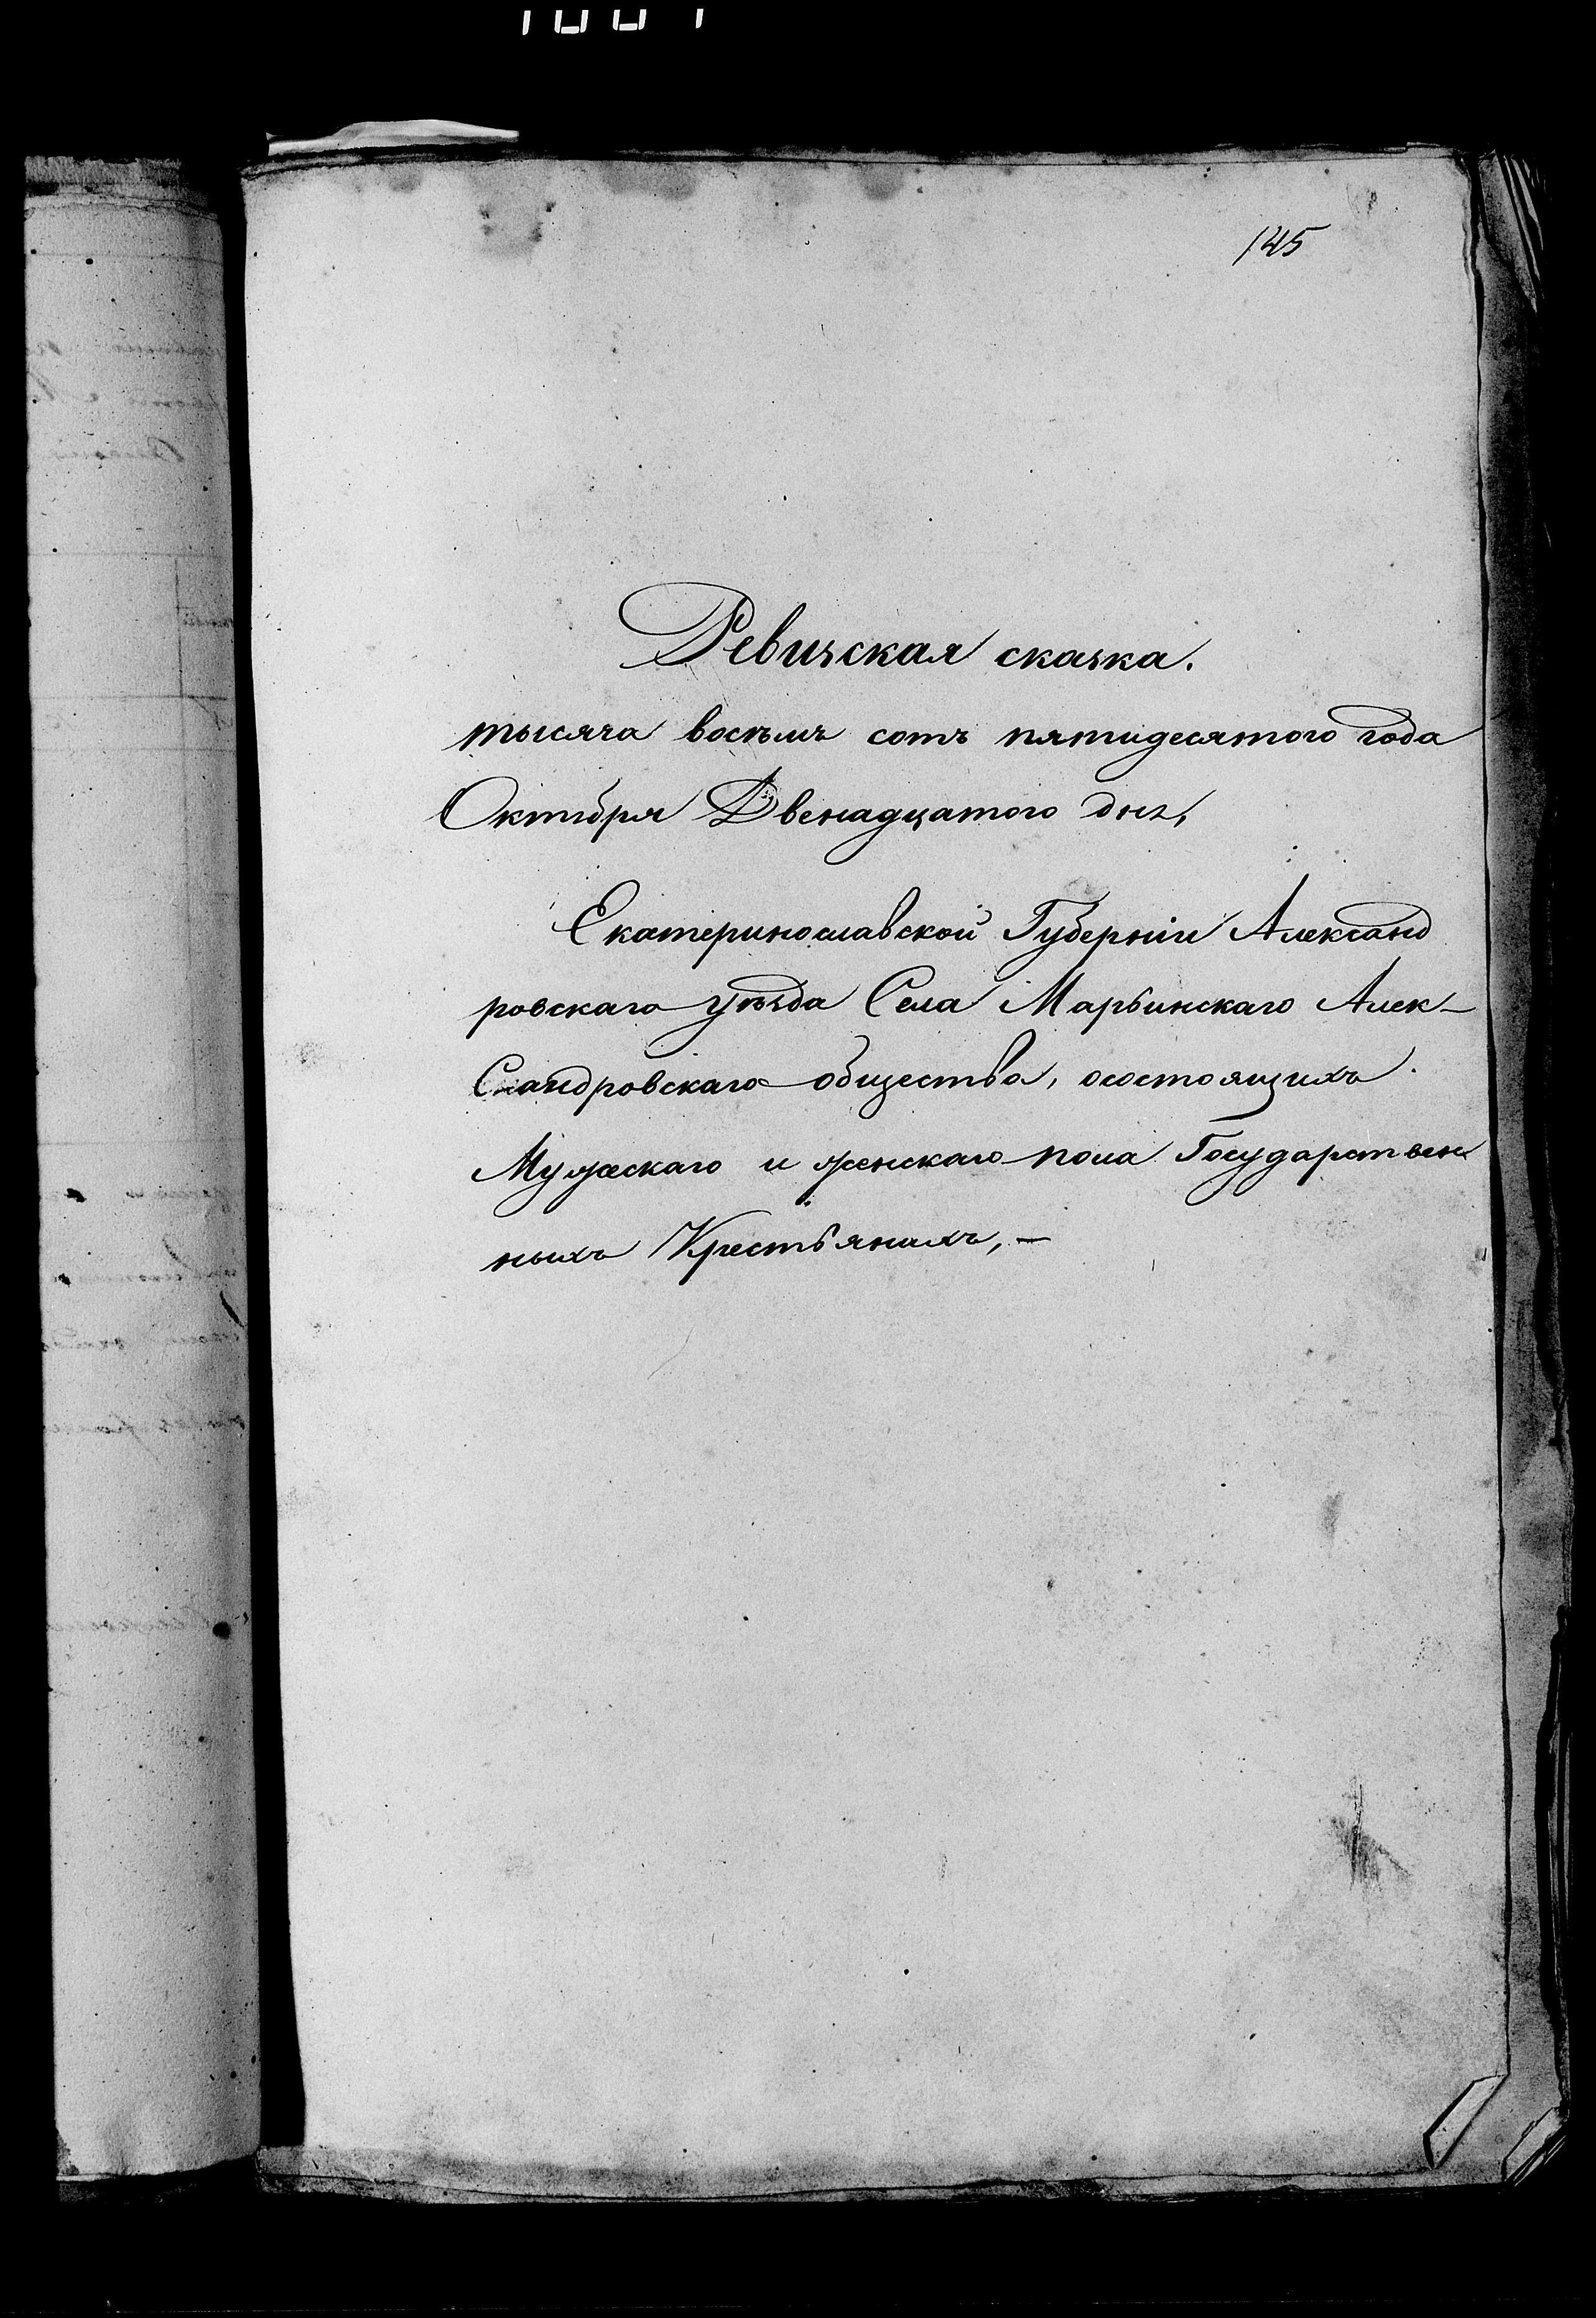 145
Ревизская сказка.
тысяча восемъ сотъ пятидесятого года
Октября Двенадцатого дня,
Екатеринославской Губерніи Александ
ровскаго уѣзда Села Марьинскаго Алек-
Сандровскаго общества, осостоящихъ
Мужескаго и женскаго пола Государствен
ныхъ Крестьянахъ, —